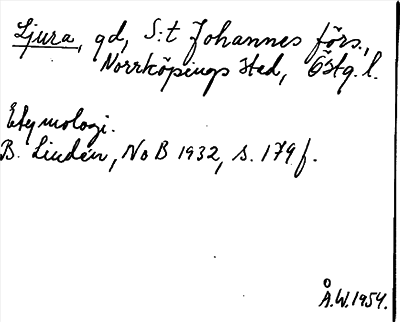 Ljura, gd, S:t Johannes förs.,
Norrköpings stad, Östg. l.
Etymologi.
B. Lindén, NoB 1932, s. 179 f.
Å.W. 1954.